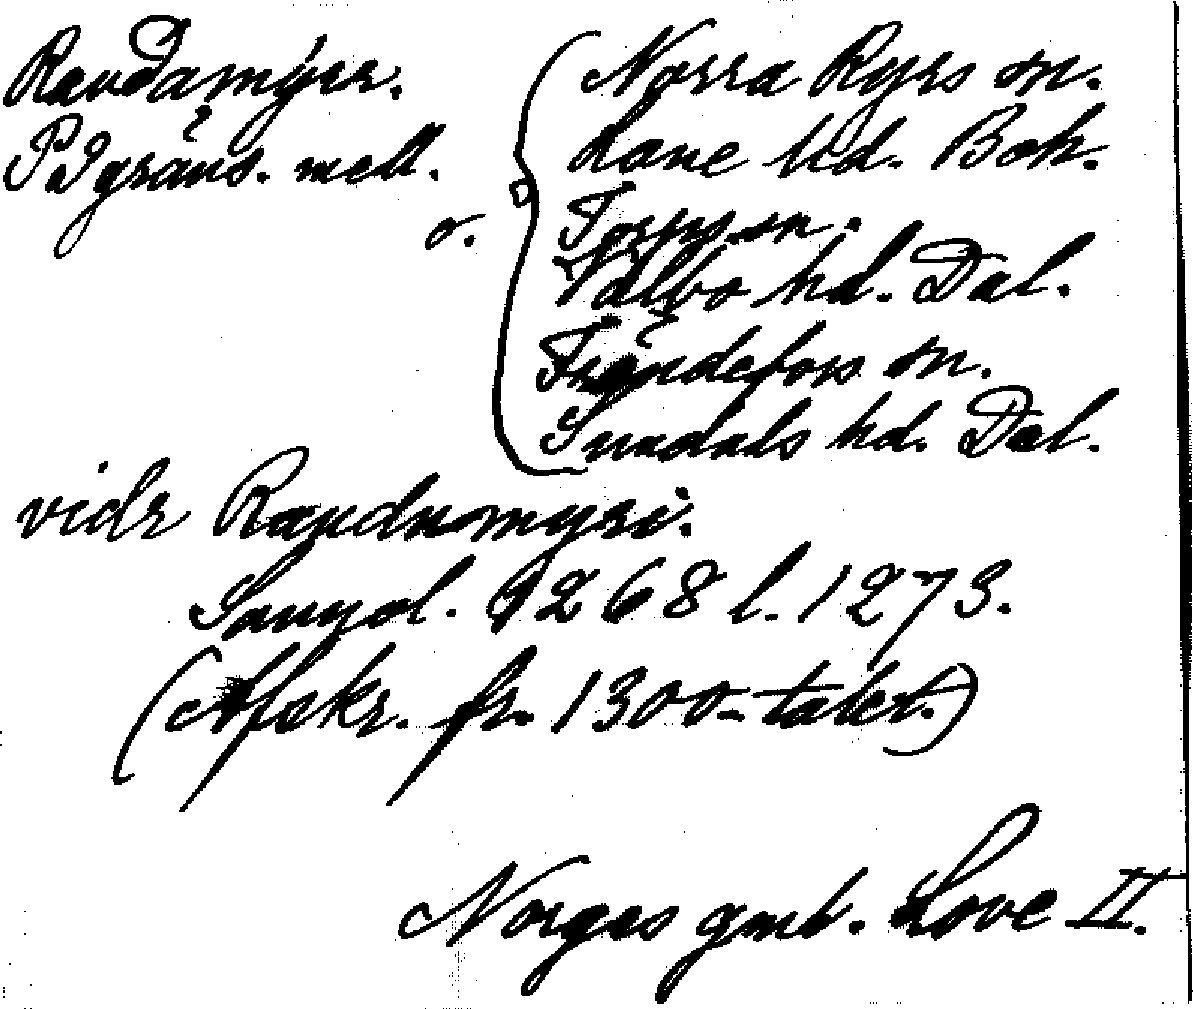 Raudamýrr.
På gräns. mell.
o.
Norra Ryrs sn.
Lane hd. Boh.
Torps sn.
Valbo hd. Dal.
Frändefors sn.
Sundals hd. Dal.
viðr Raudumyri.
1268 l. 1273.
(Afskr. fr. 1300-talet.)
Norges gml. Love II.